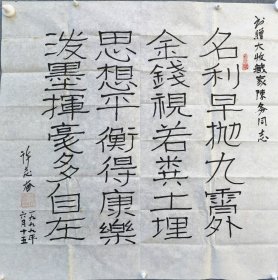 敬赠大收藏家陈多同志
名利早抛九霄外
金錢視若糞土埋
思想平衡得康樂
泼墨揮豪多自在
一九九七年
六月十五